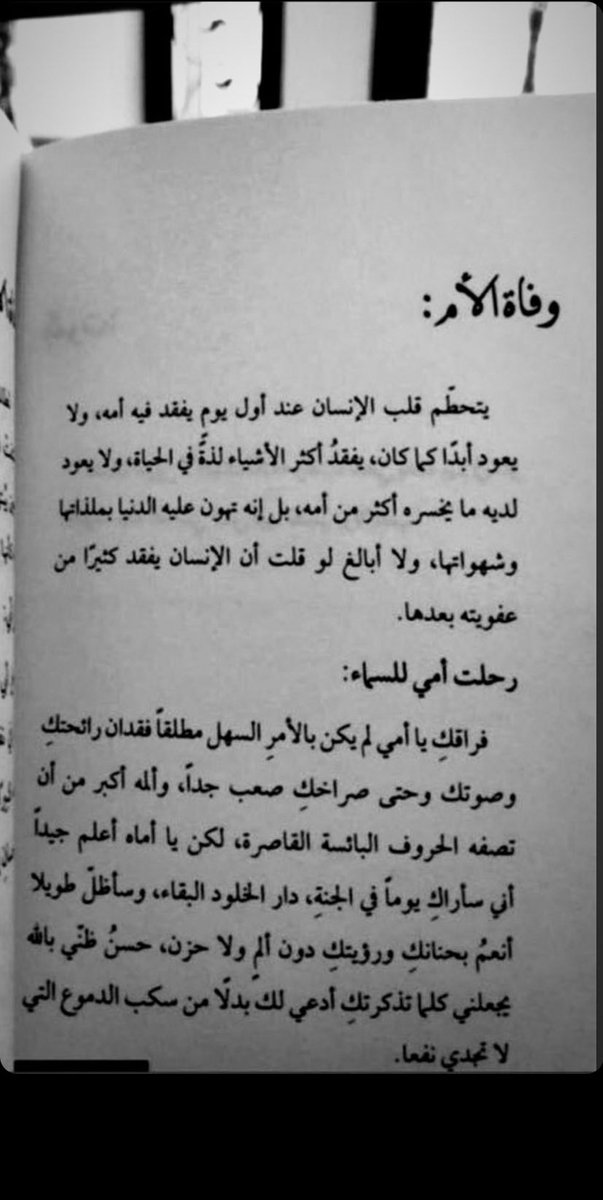 وفاة الأم:
يتحطّم قلب الإنسان عند أول يومٍ يفقد فيه أمه، ولا
يعود أبدًا كما كان، يفقدُ أكثر الأشياء لذةً في الحياة، ولا يعود
لديه ما يخسره أكثر من أمه، بل إنه تهون عليه الدنيا بملذاتها
وشهواتها، ولا أبالغ لو قلت أن الإنسان يفقد كثيرًا من
عفويته بعدها.
رحلت أمي للسماء:
فراقكِ يا أمي لم يكن بالأمرِ السهل مطلقاً فقدان رائحتكِ
وصوتك وحتى صراخكِ صعب جداً، وألمه أكبر من أن
تصفه الحروف البائسة القاصرة، لكن يا أماه أعلم جيداً
أني سأراكِ يوماً في الجنةِ، دار الخلود البقاء، وسأظلّ طويلا
أنعمُ بحنانكِ ورؤيتكِ دون ألمٍ ولا حزن، حسنُ ظنّي بالله
يجعلني كلما تذكرتكِ أدعي لك بدلًا من سكب الدموع التي
لا تجدي نفعا.